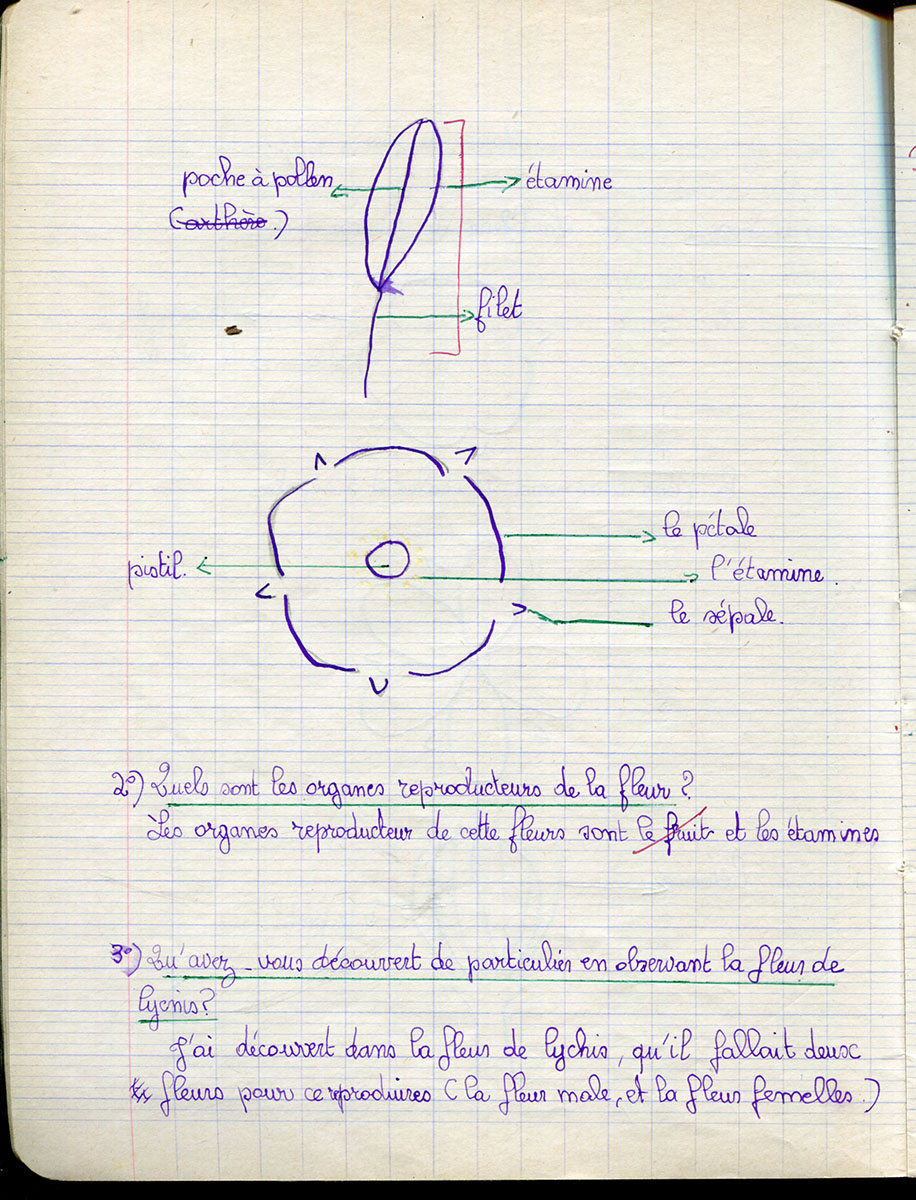 poche à pollen
(anthère.)
étamine
filet
le pétale
pistil.
l'étamine.
le sépale.
2°) Quels sont les organes reproducteurs de la fleur ?
Les organes reproducteur de cette fleurs sont le fruit et les étamines
3°) Qu'avez-vous découvert de particulier en observant la fleur de
lycnis ?
J'ai découvert dans la fleur de lychis, qu'il fallait deux
fleurs pour ce reproduires (la fleur male, et la fleur femelles.)